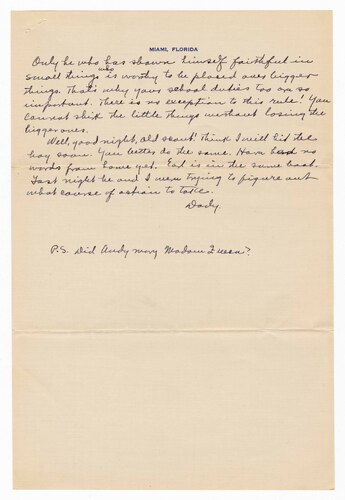 MIAMI, FLORIDA
Only he who has shown himself faithful in
small things who is worthy to be placed over bigger
things. That's why your school duties too are so
important. There is no exception to this rule! You
cannot shirk the little things without losing the
bigger ones.
Well, good night, old scout! Think I will hit the
hay soon. You better do the same. Have had no
words from home yet. Earl is in the same boat.
Last night he and I were trying to figure out
what course of action to take.
Dady.
P.S. Did Andy marry Madam Zueea?